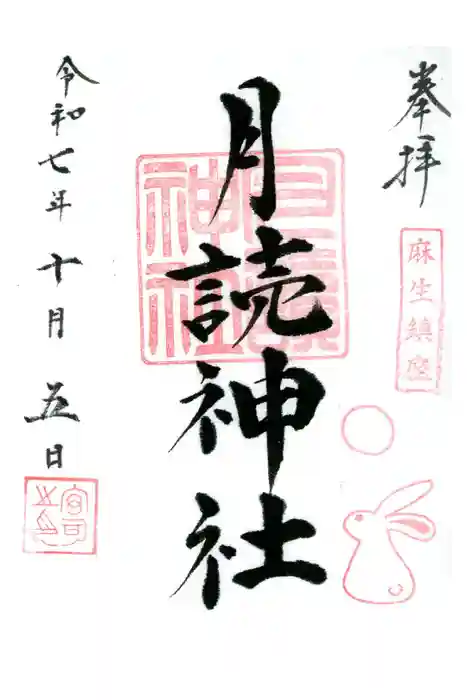 奉拝
麻生鎮座
月読神社
月讀神社
令和七年十月五日